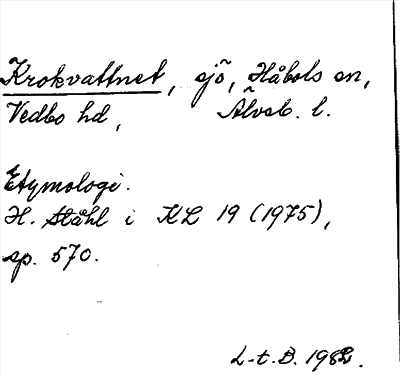 Krokvattnet, sjö, Håbols sn,
Vedbo hd, Älvsb. l.
Etymologi.
H. Ståhl i KL 19 (1975),
sp. 570.
L-t. B. 1982.